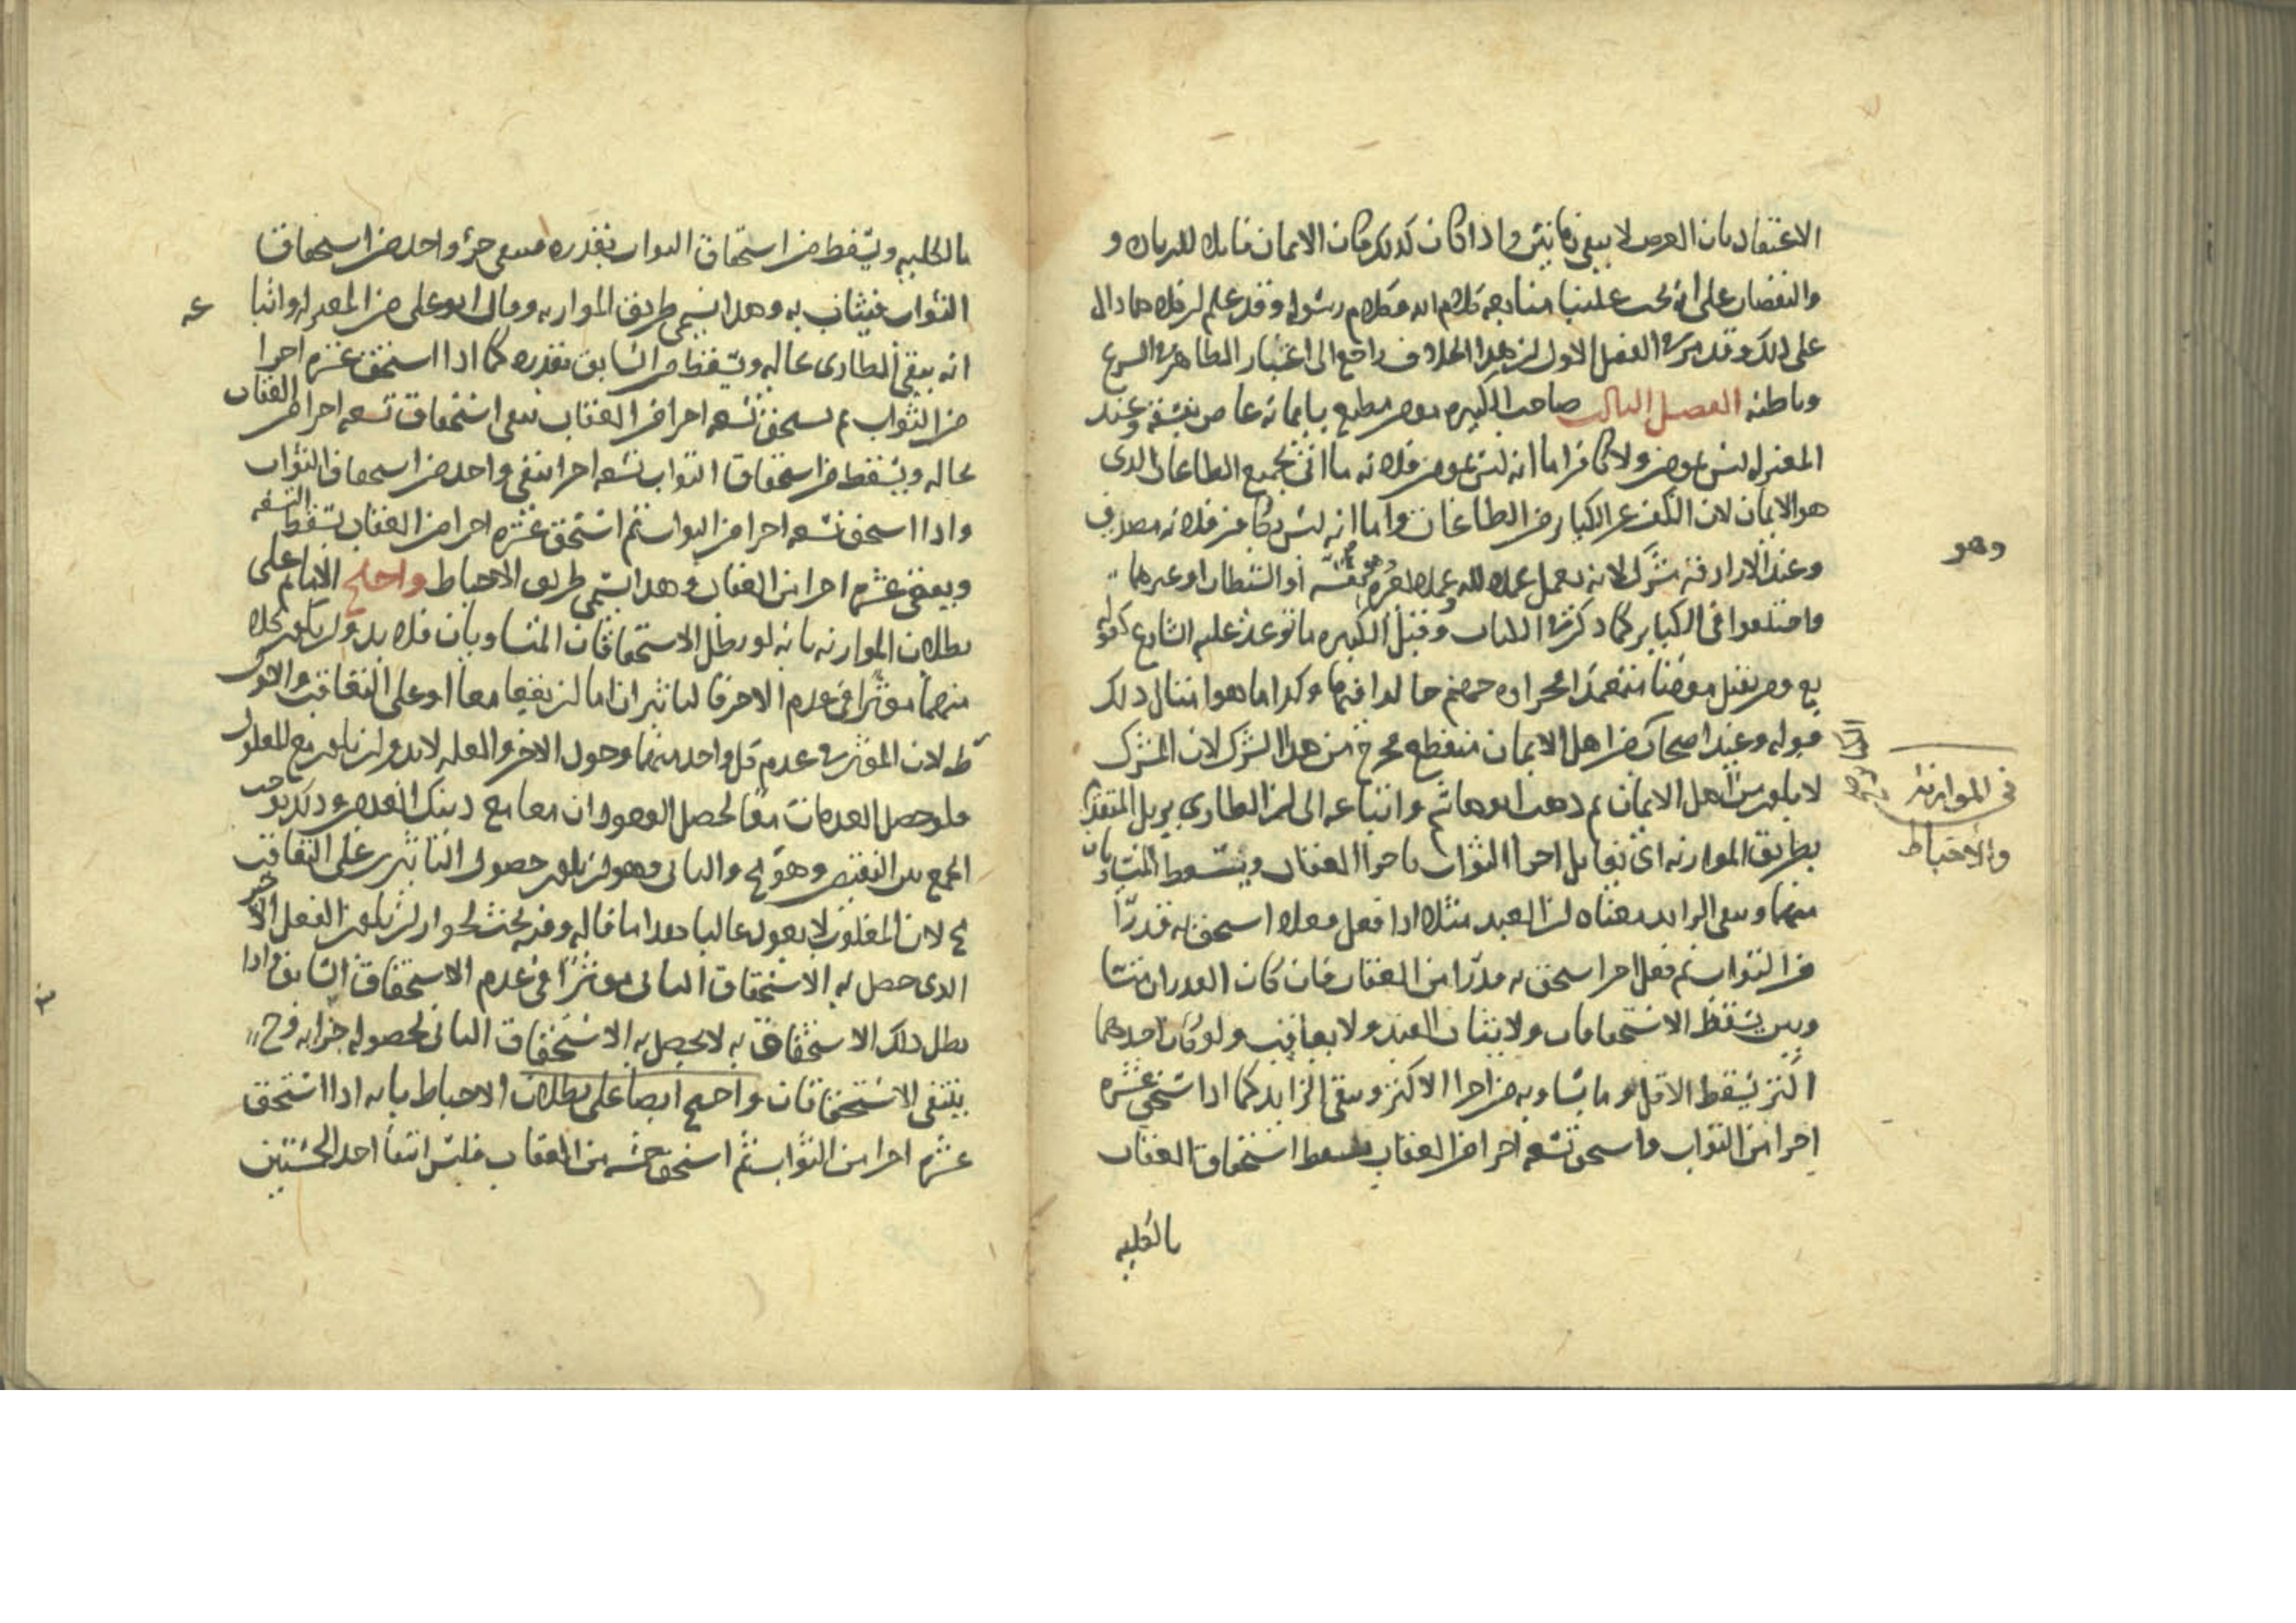 الاعتقاد بان العرض لا يبقى زمانين واذا كان كذلك كان الايمان قابلا للزيادة و
والنقصان على انه يجب علينا متابعة كلام الله وكلام رسوله وقد علم ان كلاهما دال
على ذلك وقد مر في الفصل الاول ان هذا الخلاف راجع الى اعتبار الظاهر في الشرع
وباطنه الفصل الثالث صاحب الكبيرة مؤمن مطيع بايمانه عاص بفسقه وعند
المعتزلة ليس بمومن ولا كافر اما انه ليس بمومن فلانه ما اتى بجميع الطاعات الذى
هو الايمان لان الكف عن الكبائر من الطاعات واما انه ليس بكافر فلانه مصدق
وعند الازارقة مشرك لانه يعمل عملا لله وعملا لغيره وهو نفسه أو الشيطان او غيرهما
واختلفوا فى الكباير كما ذكر في الكتاب وقيل الكبيره ما توعد عليه الشارع كقوله
تع ومن يقتل مؤمنا متعمدا فجزاؤه جهنم خالدا فيها وكذا ما هو امثال ذلك
قوله وعند اصحابنا من اهل الايمان منقطع مخرج من هذا الشرك لان المشرك
لا يكون من اهل الايمان ثم ذهب ابو هاشم واتباعه الى ان الطارى يزيل المتقدم
بطريق الموازنة اى تقابل اجزا الثواب باجزا العقاب ويسقط المتساويان
منهما ويبقى الزايد معناه ان العبد مثلا اذا فعل فعلا استحق به قدرًا
من الثواب ثم فعل اخر استحق به قدرًا من العقاب فان كان القدران متسا
ويين يسقط الاستحقاقان ولا يثاب العبد ولا يعاقب ولو كان احدهما
اكثر يسقط الاقل وما يساويه من اجزا الاكثر ويبقى الزايد كما اذا استحق عشرة
اجزا من الثواب واستحق تسعه اجزا من العقاب يسقط استحقاق العقاب
بالكليه
وهو
فى الموازنة
والاحباط
بالكلية ويسقط من استحقاق الثواب بقدره فيبقى جزؤ واحد من استحقاق
الثواب فيثاب به وهذا يسمى طريق الموازنه وقال ابو على من المعتزله واتبا
عه
انه يبقى الطارى بحاله ويسقط من السابق بقدره كما اذا استحق عشرة اجزا
من الثواب ثم يستحق تسعه اجزا من العقاب يبقى استحقاق تسعه اجزا من العقاب
بحاله ويسقط من استحقاق الثواب تسعه اجزا يبقى واحد من استحقاق الثواب
واذا استحق تسعه اجزا من الثواب ثم استحق عشرة اجزا من العقاب يسقط التسعه
ويبقى عشرة اجزا من العقاب وهذا يسمى طريق الاحباط واحتج الامام على
بطلان الموازنه بانه لو بطل الاستحقاقان المتساويان فلا بد وان يكون كل
منهما مؤثرا فى عدم الاخر فالتاثيران اما ان يقعا معا او على التعاقب والاول
ط لان المؤثر في عدم كل واحد منهما وجود الاخر والعله لا بد وان يكون مع المعلول
فلو حصل العدمان معا لحصل الوجودان معا مع ذينك العدمين وذلك يوجب
الجمع بين النقيضين وهو مح والثانى وهو ان يكون حصول التاثير على التعاقب
مح لان المغلوب لا يعود غالبا هذا ما قاله وفيه بحث لجواز ان يكون الفعل الاخير
الذى حصل به الاستحقاق الثانى مؤثرًا فى عدم الاستحقاق السابق واذا
بطل ذلك الاستحقاق به لا يحصل به الاستحقاق الثانى لحصوله جزا به وح
ينتفى الاستحقاقان واحتج ايضا على بطلان الاحباط بانه اذا استحق
عشرة اجزا من الثواب ثم استحق خمسه من العقاب فليس انتفا احد الخمستين